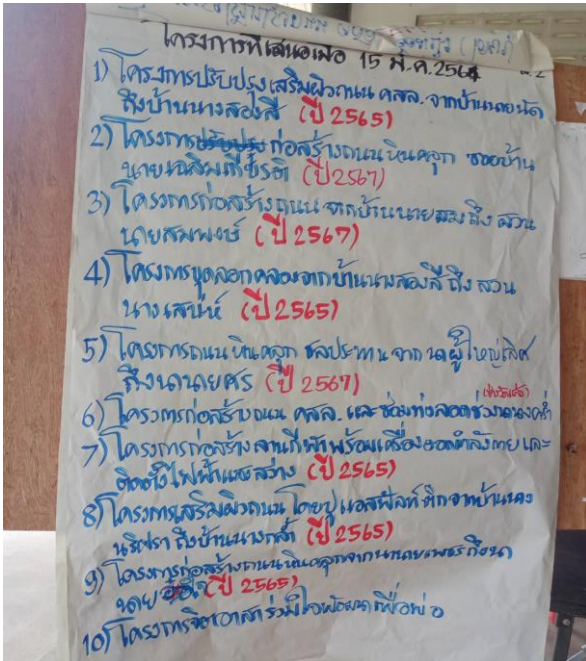 โครงการที่เสนอเมื่อ 15 มี.ค.2564
1) โครงการปรับปรุงเสริมผิวถนน คสล. จากบ้านนายนัด
ถึงบ้านนางสองสี (ปี 2565)
2) โครงการ ก่อสร้างถนนหินคลุก ซอยบ้าน
นายเฉลิมเกียรติ (ปี 2567)
3) โครงการก่อสร้างถนน จากบ้านนาย ถึง สวน
นายสมพงษ์ (ปี 2567)
4) โครงการขุดลอกคลองจากบ้านนางสองสี ถึง สวน
นางเสน่ห์ (ปี 2565)
5) โครงการถนนหินคลุก ชลประทาน จาก นาผู้ใหญ่เลิศ
ถึงนานายศร (ปี 2567)
6) โครงการก่อสร้างถนน คสล. และซ่อมท่อลอดช่วง
7) โครงการก่อสร้างลานกีฬาพร้อมเครื่องออกกำลังกาย และ
ติดตั้งไฟฟ้าแสงสว่าง (ปี 2565)
8) โครงการเสริมผิวถนน โดยปูแอสฟัลท์ติกจากบ้านนาง
นริศรา ถึงบ้านนางกล่ำ (ปี 2565)
9) โครงการก่อสร้างถนนหินคลุกจากนานายเพชร ถึงนา
นาย (ปี 2565)
10) โครงการจิตอาสาร่วมใจพัฒนาเพื่อพ่อ